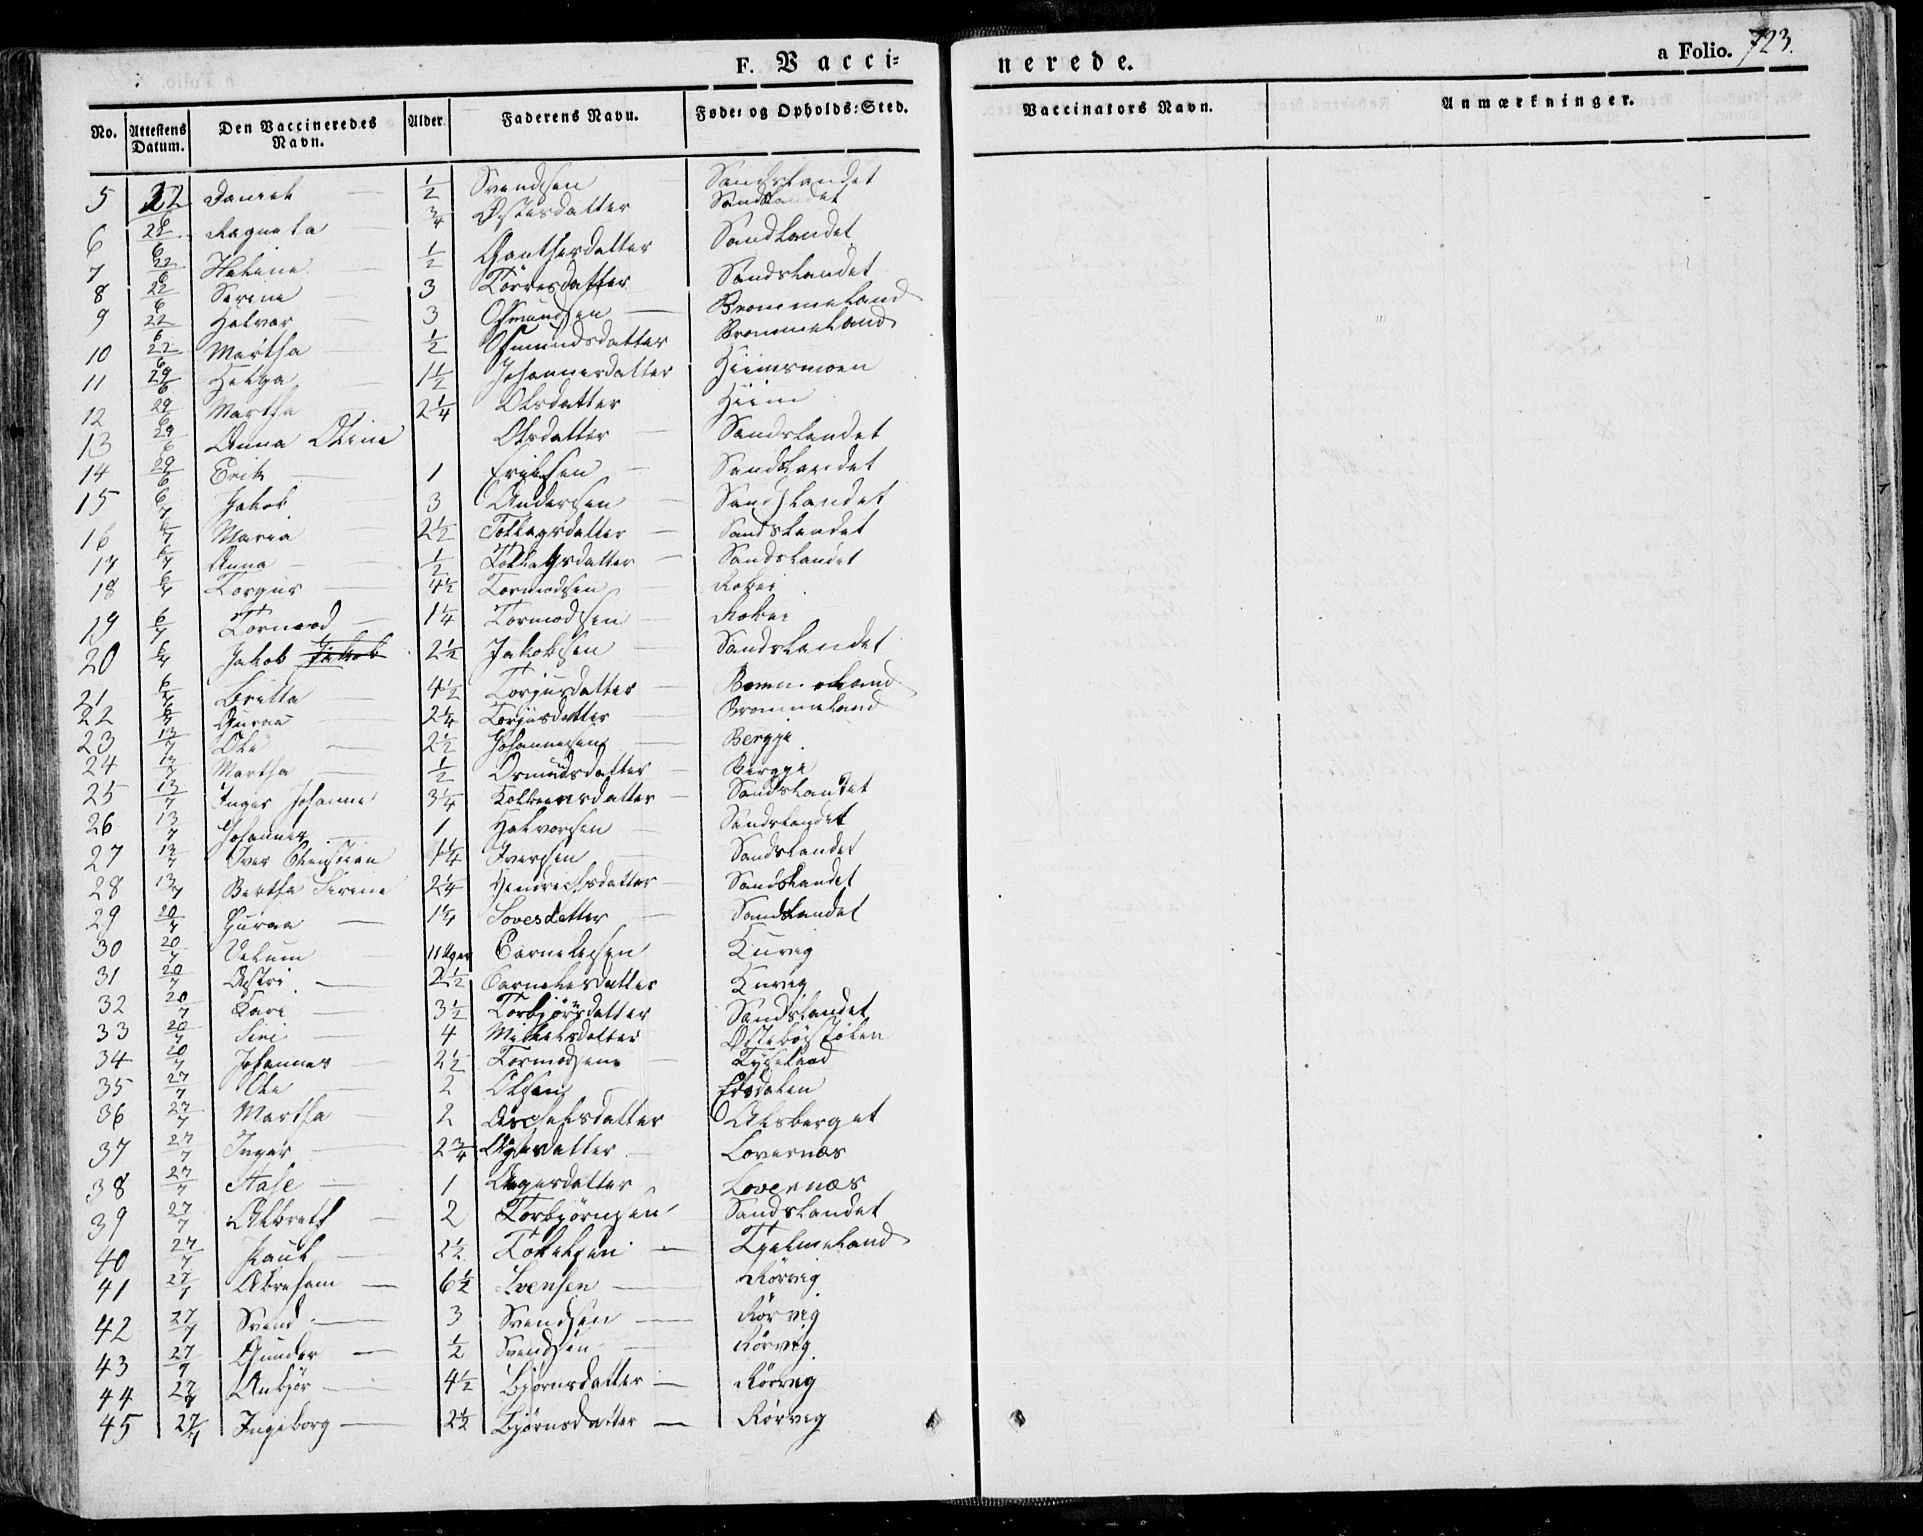 F. Vacci-
nerede.
a Folio. 723.
No. Attestens Datum. Den Vaccineredes Navn. Alder Faderens Navn. Føde- og Opholds-Sted. Vaccinators Navn. Anmærkninger.
5 22/6 Daniel — 1/2 Svendsen Sandslandet
6 28/6 Ragnela 3/4 Østesdatter Sandslandet
7 22/6 Helene — 1/2 Gauthesdatter Sandlandet
8 22/6 Serine — 3 Törresdatter Sandslandet
9 22/6 Halvor — 3 Osmundsen — Brommeland
10 22/6 Martha — 1/2 Osmundsdatter Brommeland
11 29/6 Helga — 1 1/2 Johannesdatter Hiimsmoen
12 29/6 Martha 2 1/4 Olsdatter Hiim
13 29/6 Anna Oline Olsdatter — Sandslandet
14 29/6 Erik — 1 Eriksen — Sandslandet
15 6/7 Jakob 3 Andersen — Sandslandet
16 6/7 Maria — 2 1/2 Tollagsdatter — Sandslandet
17 6/7 Anna — 1/2 Tollagsdatter — Sandslandet
18 6/7 Torgus — 4 1/2 Tormodsen Rokei
19 6/7 Tormod — 1 1/4 Tormodsen — Rokei
20 6/7 Jakob Jakob 2 1/2 Jakobsen — Sandslandet
21 6/7 Britta — 4 1/2 Torjusdatter — Brommeland
22 6/7 Guroe — 2 1/4 Torjusdatter — Brommeland
23 13/7 Ole — 2 1/2 Johannesen — Bergje
24 13/7 Martha — 1/2 Osmundsdatter — Bergje
25 13/7 Inger Johanne 3 1/4 Kolbeensdatter — Sandslandet
26 13/7 Johannes — 1 Halvorsen — Sandslandet
27 13/7 Iver Christian 1 1/4 Iversen — Sandslandet
28 13/7 Bertha Serine 2 1/4 Hendrichsdatter — Sandslandet
29 20/7 Guroe — 1 1/4 Sovesdatter — Sandslandet
30 20/7 Velum — 11 Uger Carnelesen Kuvig
31 20/7 Astri — 2 1/2 Carnelesdatter Kuvig
32 20/7 Kari — 3 1/2 Torbjörnsdatter Sandslandet
33 20/7 Siri — 4 Mikkelsdatter Østebøstølen
34 20/7 Johannes — 2 1/2 Tormodsen — Tyseland
35 27/7 Ole — 2 Olsen — Eidsdalen
36 27/7 Martha — 2 Aschelsdatter Alsberget
37 27/7 Inger — 2 3/4 Aagesdatter — Lovernæs
38 27/7 Aase — 1 Aagesdatter Lovernæs
39 27/7 Albreth — 2 Torbjørnsen Sandslandet
40 27/7 Paul — 2 1/2 Tolleksen — Tjelmeland
41 27/7 Abraham — 6 1/2 Svensen — Rörvig
42 27/7 Svend — 3 Svendsen — Rørvig
43 27/7 Gunder — 1/2 Svendsen — Rörvig
44 27/7 Anbjör — 4 1/2 Bjørnsdatter — Rörvig
45 27/7 Ingeborg — 2 1/2 Bjørnsdatter — Rørvig